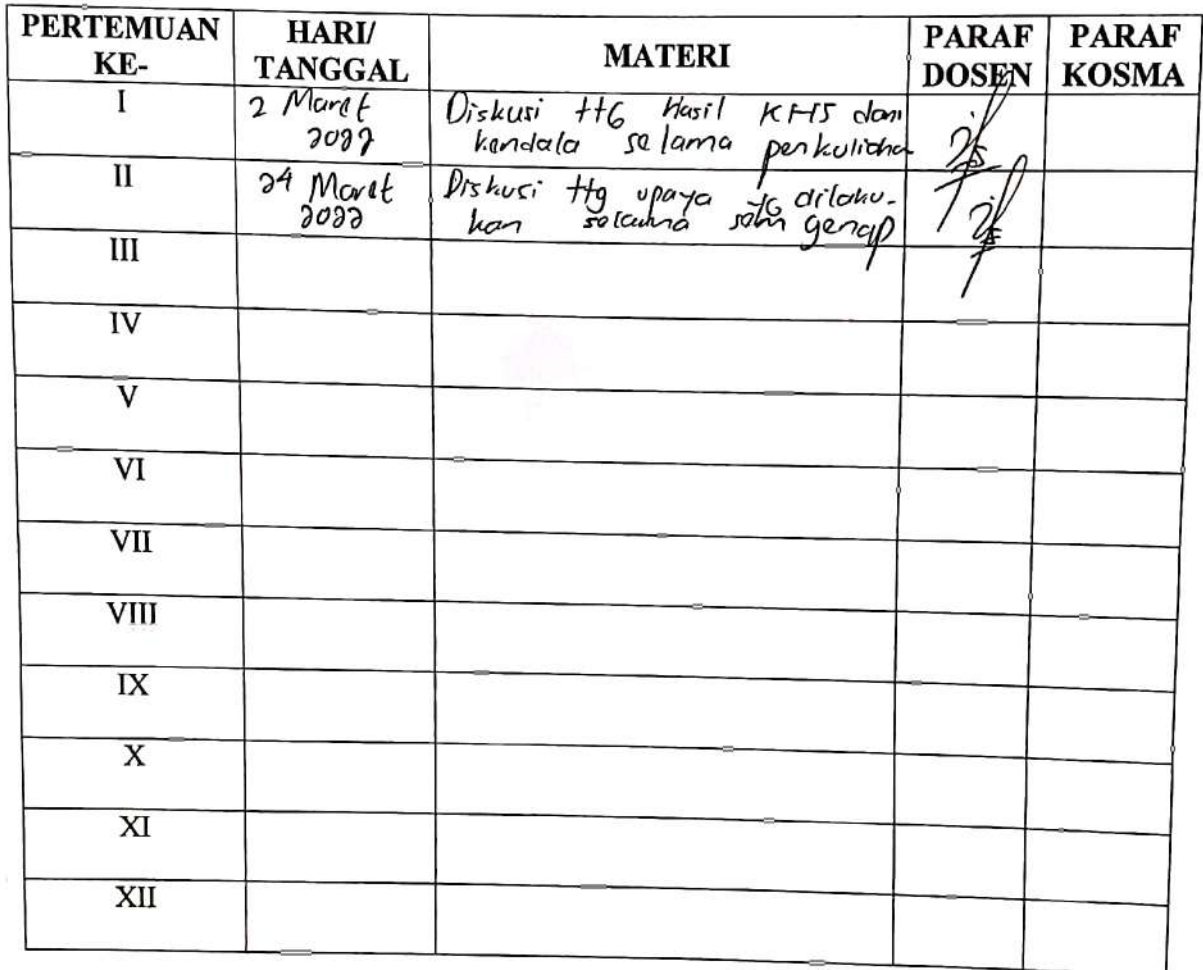 PERTEMUAN KE- HARI/ TANGGAL MATERI PARAF DOSEN PARAF KOSMA
I 2 Maret 2022 Diskusi ttg Hasil KHS dan
kendala selama perkuliaha
II 24 Maret 2022 Diskusi ttg upaya yg dilaku-
kan selama sem genap
III
IV
V
VI
VII
VIII
IX
X
XI
XII